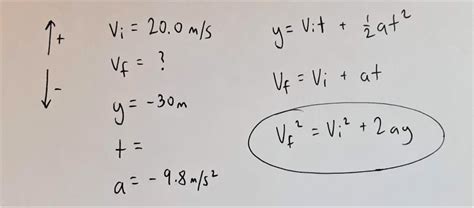 +
-
Vi = 20.0 m/s
Vf = ?
y = -30m
t =
a = -9.8m/s²
y = Vit + ½at²
Vf = Vi + at
Vf² = Vi² + 2ay